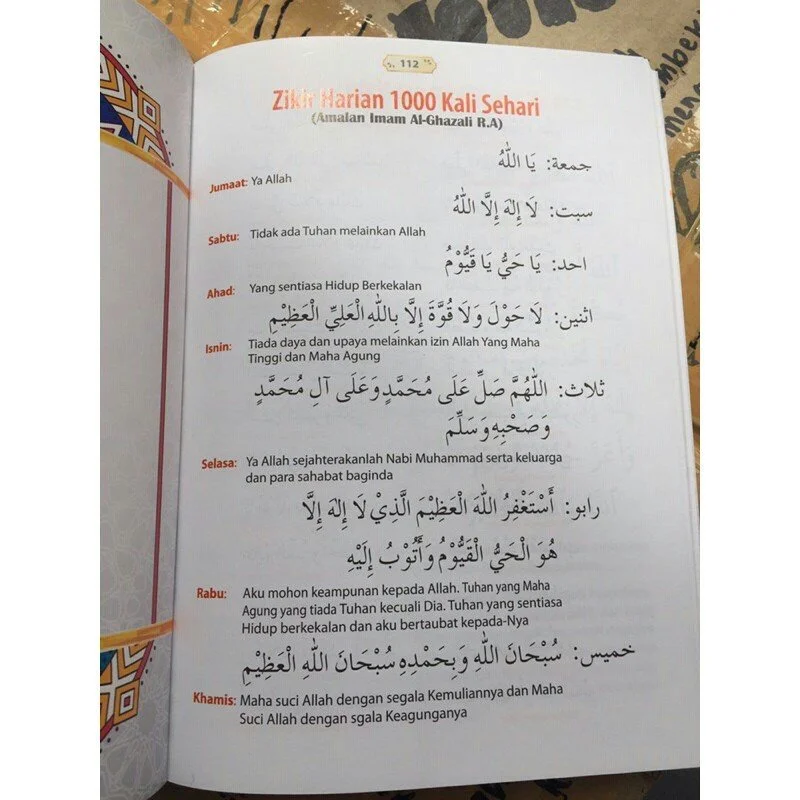 112
Zikir Harian 1000 Kali Sehari
(Amalan Imam Al-Ghazali R.A)
جمعة: يَا اللّٰهُ
Jumaat: Ya Allah
سبت: لَا إِلٰهَ إِلَّا اللّٰهُ
Sabtu: Tidak ada Tuhan melainkan Allah
احد: يَا حَيُّ يَا قَيُّوْمُ
Ahad: Yang sentiasa Hidup Berkekalan
اثنين: لَا حَوْلَ وَلَا قُوَّةَ إِلَّا بِاللّٰهِ الْعَلِيِّ الْعَظِيْمِ
Isnin: Tiada daya dan upaya melainkan izin Allah Yang Maha
Tinggi dan Maha Agung
ثلاث: اللّٰهُمَّ صَلِّ عَلَى مُحَمَّدٍ وَعَلَى آلِ مُحَمَّدٍ
وَصَحْبِهِ وَسَلِّمَ
Selasa: Ya Allah sejahterakanlah Nabi Muhammad serta keluarga
dan para sahabat baginda
رابو: أَسْتَغْفِرُ اللّٰهَ الْعَظِيْمَ الَّذِيْ لَا إِلٰهَ إِلَّا
هُوَ الْحَيُّ الْقَيُّوْمُ وَأَتُوْبُ إِلَيْهِ
Rabu: Aku mohon keampunan kepada Allah. Tuhan yang Maha
Agung yang tiada Tuhan kecuali Dia. Tuhan yang sentiasa
Hidup berkekalan dan aku bertaubat kepada-Nya
خميس: سُبْحَانَ اللّٰهِ وَبِحَمْدِهِ سُبْحَانَ اللّٰهِ الْعَظِيْمِ
Khamis: Maha suci Allah dengan segala Kemuliannya dan Maha
Suci Allah dengan sgala Keagunganya